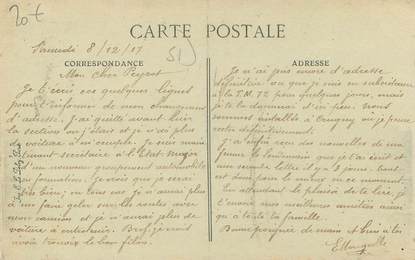 20f
CARTE POSTALE
Samedi 8/12/17
51
CORRESPONDANCE
ADRESSE
Mon cher Peyrot
Je t'écris ces quelques lignes
pour t'informer de mon changement
d'adresse. J'ai quitté avant hier
la section où j'étais et je n'ai plus
voiture à m'occuper. Je suis main
tenant secrétaire à l'Etat Major
d'un nouveau groupement automobile
en formation. Je crois que je serai
bien; en tous cas je n'aurai plus
à me faire geler sur les routes avec
mon camion et je n'aurai plus de
voiture à entretenir. Bref, je crois
avoir trouvé le bon filon.
Je n'ai pas encore d'adresse
définitive vu que je suis en subsistance
à la T.M. 72 pour quelques jours, mais
je te la donnerai d'ici peu. Nous
sommes installés à où je pense
rester définitivement.
J'ai enfin reçu des nouvelles de ma
femme le lendemain que je t'ai écrit et
une seconde lettre il y a 3 jours; tout
est donc pour le mieux en ce moment.
En attendant le plaisir de te lire, je
t'envoie mes meilleures amitiés ainsi
qu'à toute ta famille.
Bonne poignée de main et bien à toi